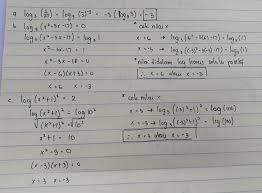 a. log₃ (1/27) = log₃ (3)⁻³ = -3 (log₃ 3) = -3
b. log₅ (x²-3x-17) = 0
log₅ (x²-3x-17) = log₅ 1
x²-3x-17 = 1
x²-3x-18 = 0
(x-6)(x+3) = 0
x = 6 x = -3
* cek nilai x
x = 6 →
x = -3 →
* nilai didalam log harus selalu positif
∴ x = 6 atau x = -3
c. log (x²+1)² = 2
log (x²+1)² = log 10²
√(x²+1)² = √10²
x²+1 = 10
x²-9 = 0
(x-3)(x+3) = 0
x = 3 x = -3
* cek nilai x
x = 3 → log ((3)²+1)² = log (100)
x = -3 → log ((-3)²+1)² = log (100)
∴ x = 3 atau x = -3